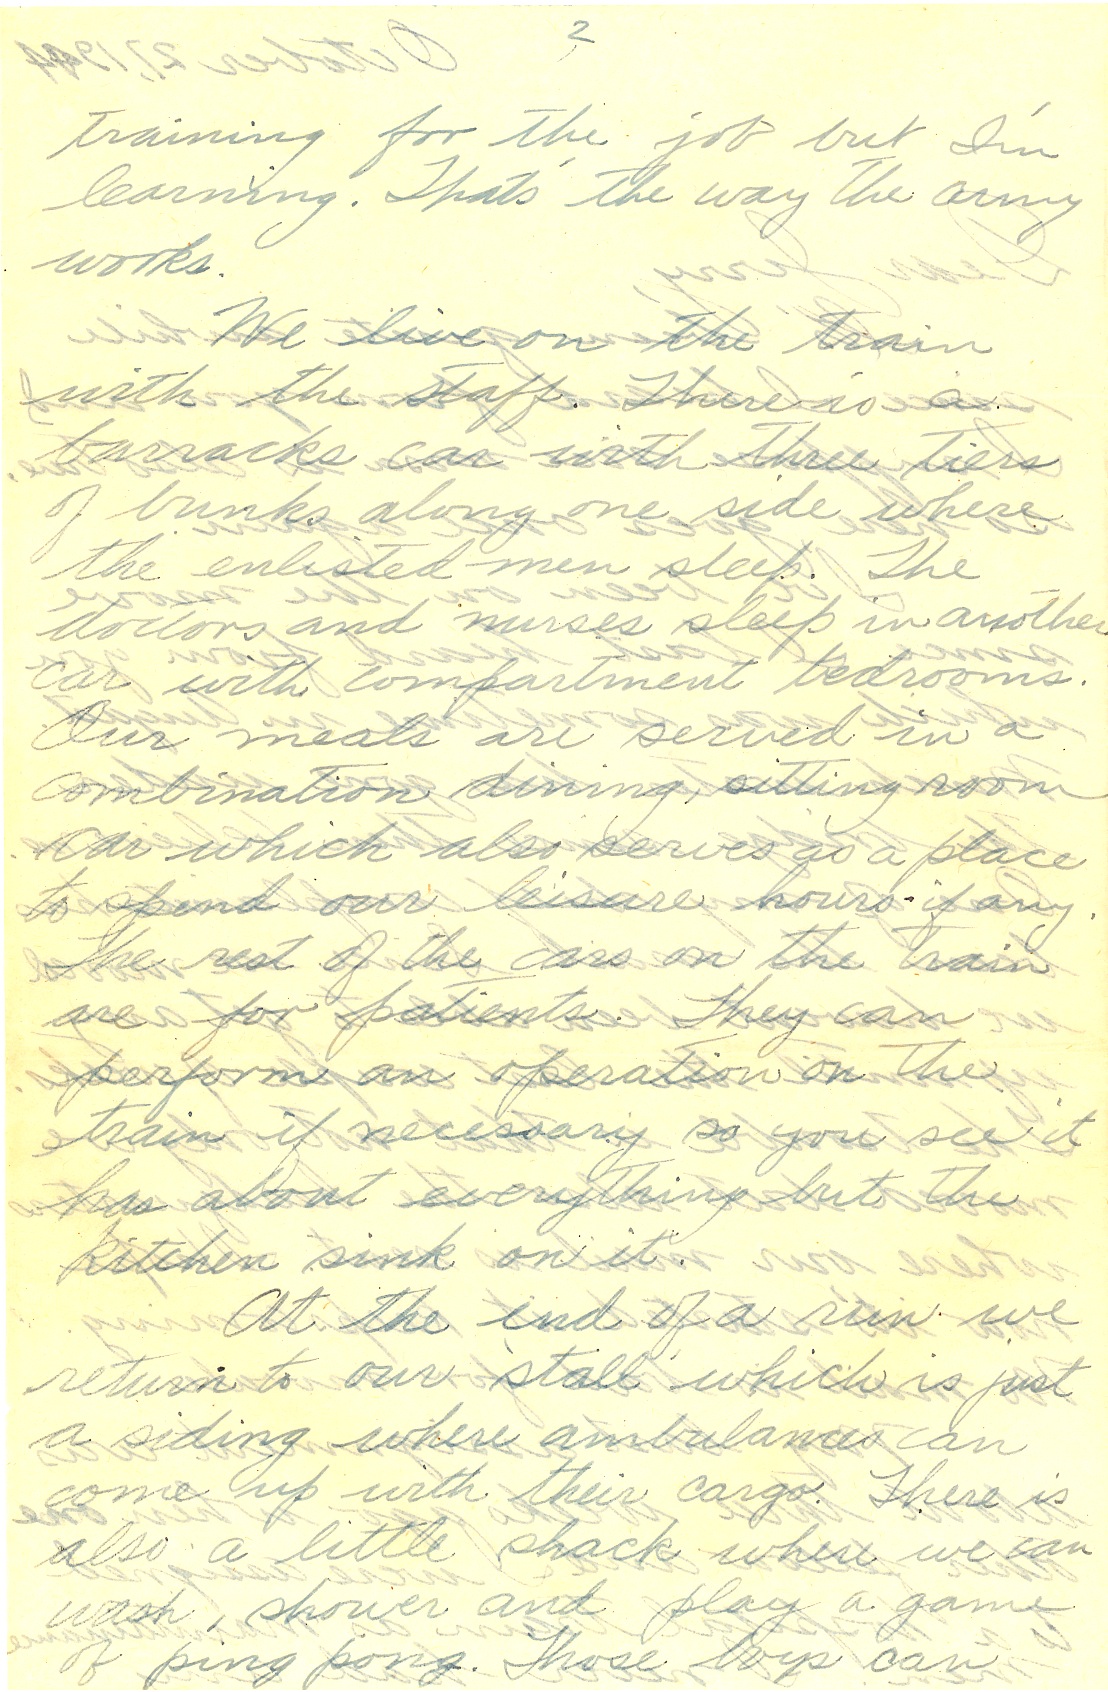 2
training for the job but I'm
learning. That's the way the army
works.
We live on the train
with the staff. There is a
barracks car with three tiers
of bunks along one side where
the enlisted men sleep. The
doctors and nurses sleep in another
car with compartment bedrooms.
Our meals are served in a
combination dining, sitting room
car which also serves as a place
to spend our leisure hours - if any.
The rest of the cars on the train
are for patients. They can
perform an operation on the
train if necessary so you see it
has about everything but the
kitchen sink on it.
At the end of a run we
return to our "stall" which is just
a siding where ambulances can
come up with their cargo. There is
also a little shack where we can
wash, shower and play a game
of ping pong. Those boys can